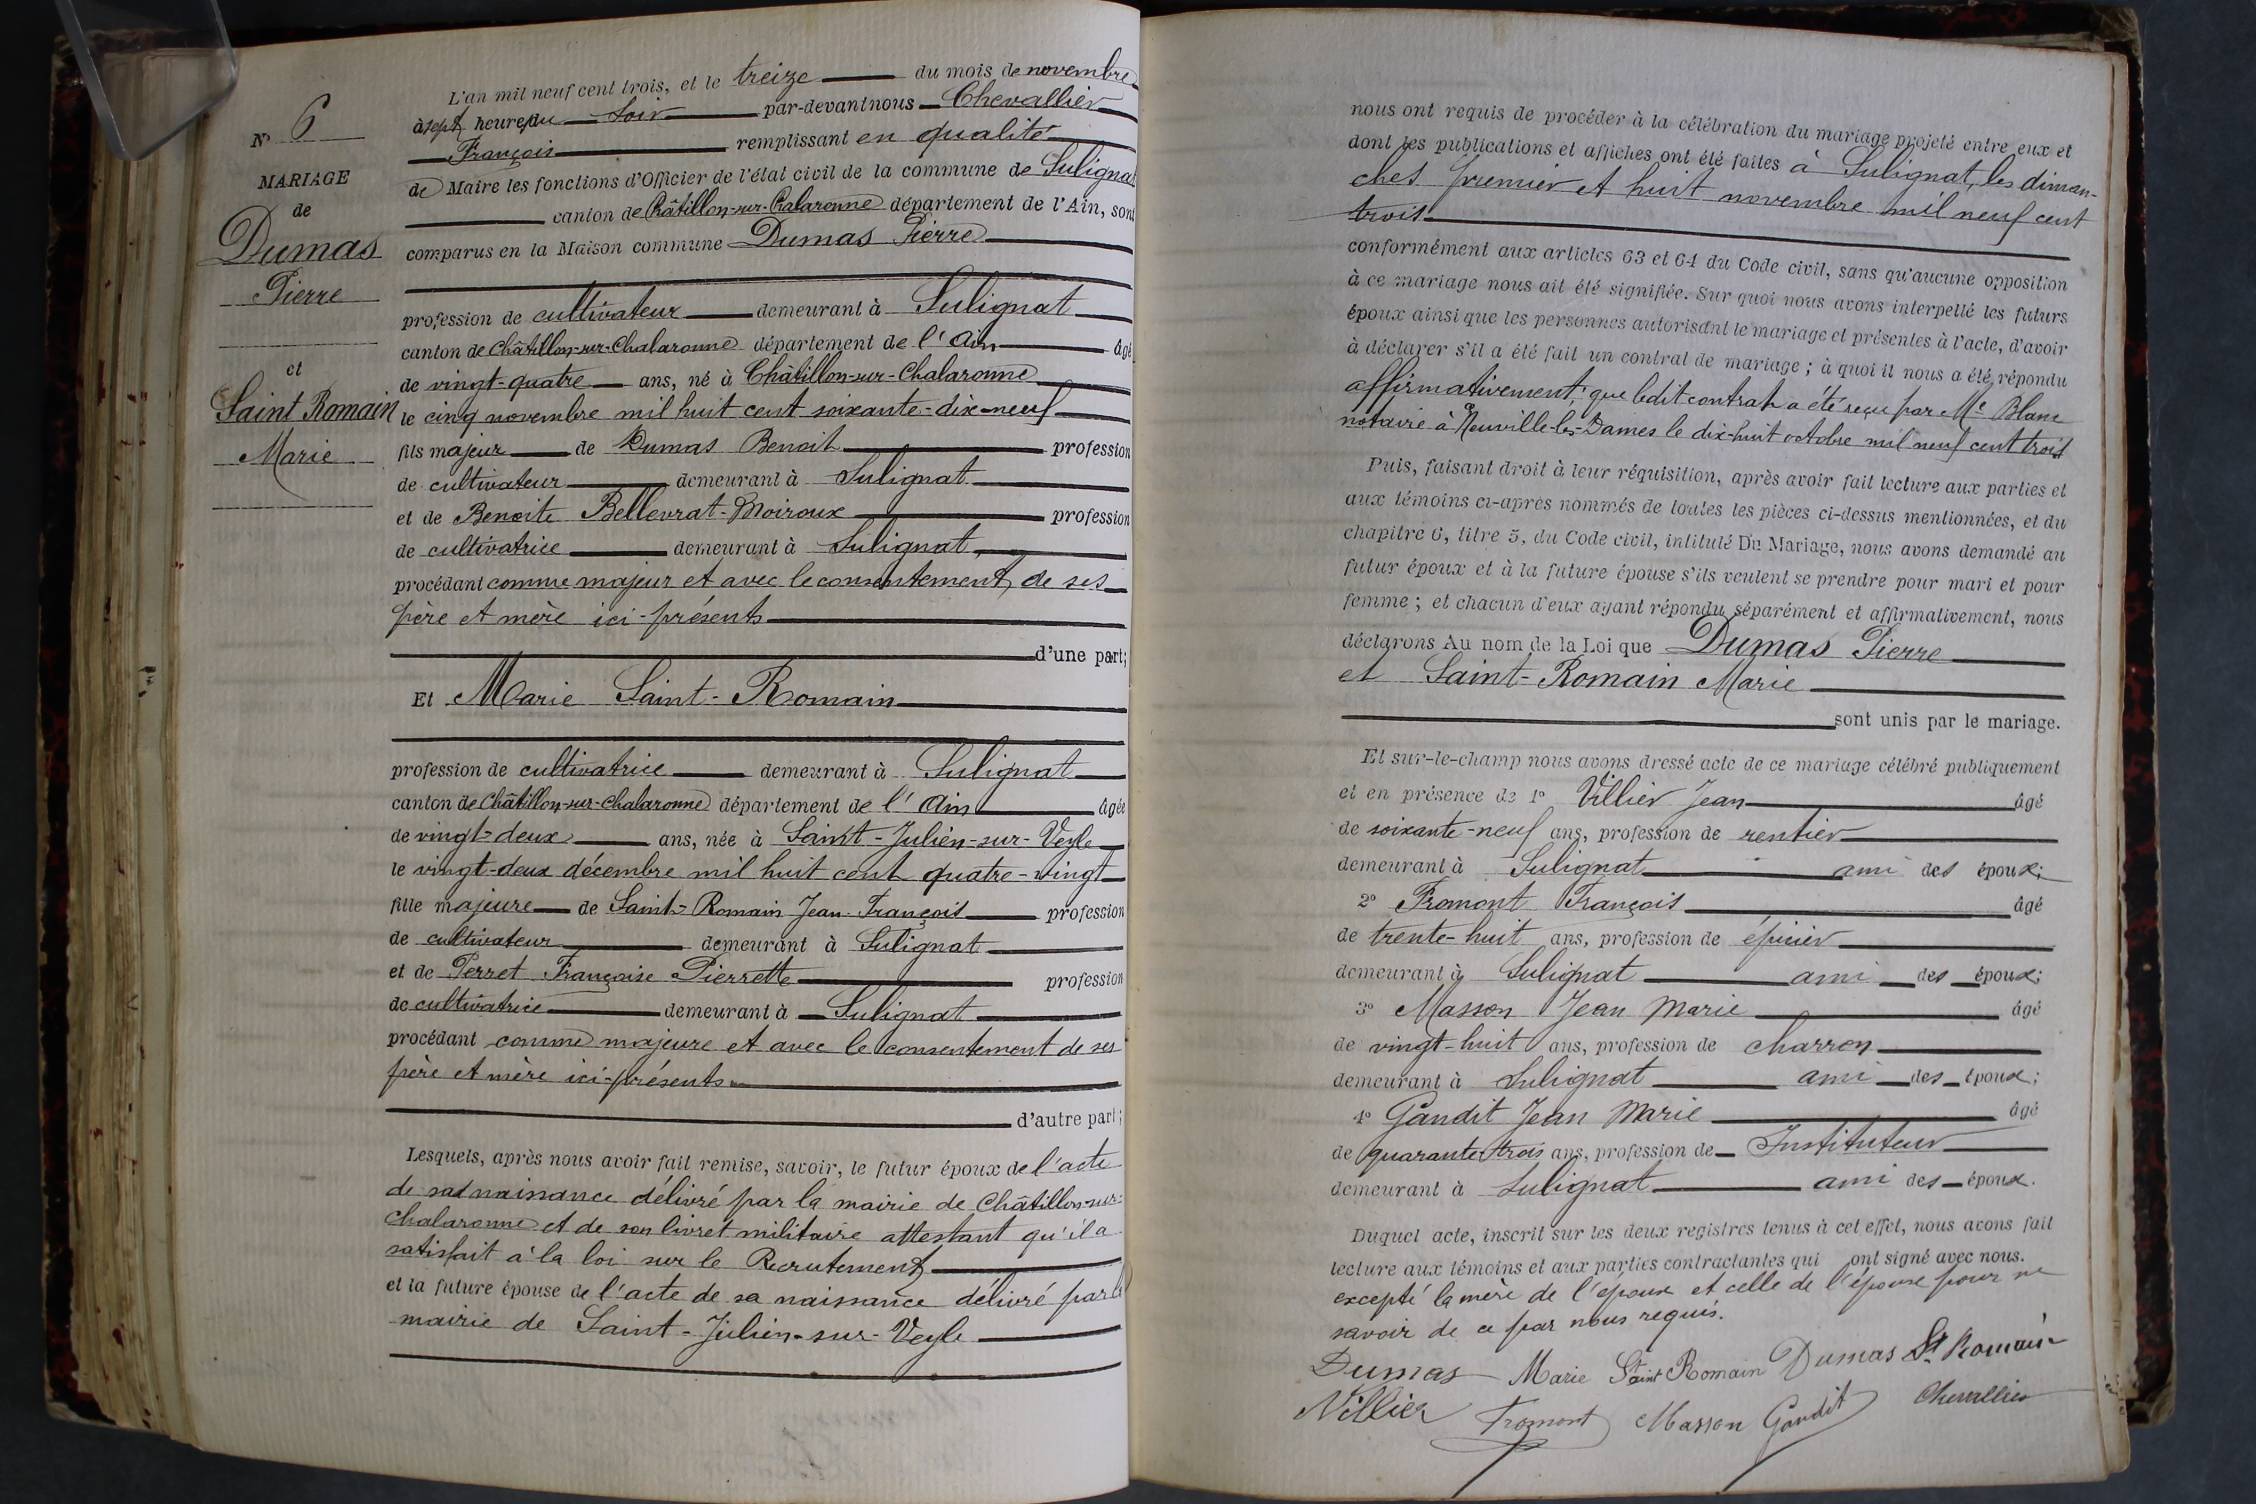 N° 6
MARIAGE
de
Dumas
Pierre
et
Saint Romain
Marie
L'an mil neuf cent trois, et le treize du mois de novembre
à sept heures du soir par-devant nous Chevallier
François remplissant en qualité
de Maire les fonctions d'Officier de l'état civil de la commune de Sulignat
canton de Châtillon-sur-Chalaronne département de l'Ain, sont
comparus en la Maison commune Dumas Pierre
profession de cultivateur demeurant à Sulignat
canton de Châtillon-sur-Chalaronne département de l'Ain âgé
de vingt-quatre ans, né à Châtillon-sur-Chalaronne
le cinq novembre mil huit cent soixante-dix-neuf
fils majeur de Dumas Benoit profession
de cultivateur demeurant à Sulignat
et de Benoite Bellevrat-Moiroux profession
de cultivatrice demeurant à Sulignat
procédant comme majeur et avec le consentement de ses
père et mère ici-présents
d'une part;
Et Marie Saint-Romain
profession de cultivatrice demeurant à Sulignat
canton de Châtillon-sur-Chalaronne département de l'Ain âgée
de vingt-deux ans, née à Saint-Julien-sur-Veyle
le vingt-deux décembre mil huit cent quatre-vingt
fille majeure de Saint-Romain Jean-François profession
de cultivateur demeurant à Sulignat
et de Perret Françoise Pierrette profession
de cultivatrice demeurant à Sulignat
procédant comme majeure et avec le consentement de ses
père et mère ici-présents
d'autre part;
Lesquels, après nous avoir fait remise, savoir, le futur époux de l'acte
de sa naissance délivré par la mairie de Châtillon-sur-
Chalaronne et de son livret militaire attestant qu'il a
satisfait à la loi sur le Recrutement
et la future épouse de l'acte de sa naissance délivré par la
mairie de Saint-Julien-sur-Veyle
nous ont requis de procéder à la célébration du mariage projeté entre eux et
dont les publications et affiches ont été faites à Sulignat, les diman-
ches premier et huit novembre mil neuf cent
trois
conformément aux articles 63 et 64 du Code civil, sans qu'aucune opposition
à ce mariage nous ait été signifiée. Sur quoi nous avons interpellé les futurs
époux ainsi que les personnes autorisant le mariage et présentes à l'acte, d'avoir
à déclarer s'il a été fait un contrat de mariage; à quoi il nous a été répondu
affirmativement; que ledit contrat a été reçu par Me Blanc
notaire à Neuville-les-Dames le dix-huit octobre mil neuf cent trois
Puis, faisant droit à leur réquisition, après avoir fait lecture aux parties et
aux témoins ci-après nommés de toutes les pièces ci-dessus mentionnées, et du
chapitre 6, titre 5, du Code civil, intitulé Du Mariage, nous avons demandé au
futur époux et à la future épouse s'ils veulent se prendre pour mari et pour
femme; et chacun d'eux ayant répondu séparément et affirmativement, nous
déclarons Au nom de la Loi que Dumas Pierre
et Saint-Romain Marie
sont unis par le mariage.
Et sur-le-champ nous avons dressé acte de ce mariage célébré publiquement
et en présence de 1° Villier Jean âgé
de soixante-neuf ans, profession de rentier
demeurant à Sulignat ami des époux;
2° Fromont François âgé
de trente-huit ans, profession de épicier
demeurant à Sulignat ami des époux;
3° Masson Jean Marie âgé
de vingt-huit ans, profession de charron
demeurant à Sulignat ami des époux;
4° Gandit Jean Marie âgé
de quarante-trois ans, profession de Instituteur
demeurant à Sulignat ami des époux.
Duquel acte, inscrit sur les deux registres tenus à cet effet, nous avons fait
lecture aux témoins et aux parties contractantes qui ont signé avec nous.
excepté la mère de l'époux et celle de l'épouse pour ne
savoir de ce par nous requis.
Dumas Marie Saint Romain Dumas St Romain
Villier Fromont Masson Gandit Chevallier